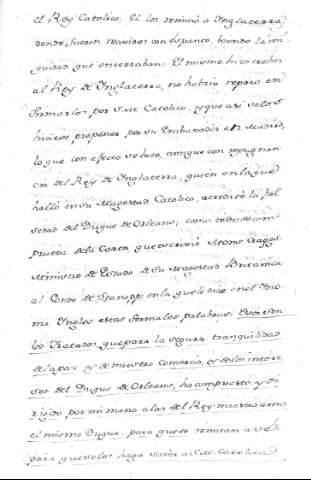 el Rey Catolico. El los remitió a Inglaterra,
donde fueron recividos con espanto, biendo la ini-
quidad que encerraban: El mismo hizo creher
al Rey de Inglaterra, no habria reparo en
firmarlos, por S.M. Catolica, y que asi se los
hiciese proponer, por su Embaxador en Madrid,
lo que con efecto se hizo, aunque con repugnan-
cia del Rey de Inglaterra, quien en la que
halló en Su Magestad Catolica, acreditó la fal-
sedad del Duque de Orleans; como todo se com-
prueba de la Carta que escrivió Mons. Crags
Ministro de Estado de Su Magestad Britanica
al Conde de Stanop: en la que le dice en el Ydio-
ma Ingles estas formales palabras:
los Tratados, que para la segura tranquilidad
de la paz, y de nuestro comercio, y de los intere-
ses del Duque de Orleans, ha compuesto, y di-
rigido por mi mano a las del Rey nuestro amo
el mismo Duque, para que se remitan a V.E.
para que se los haga ver a S.M. Catolica